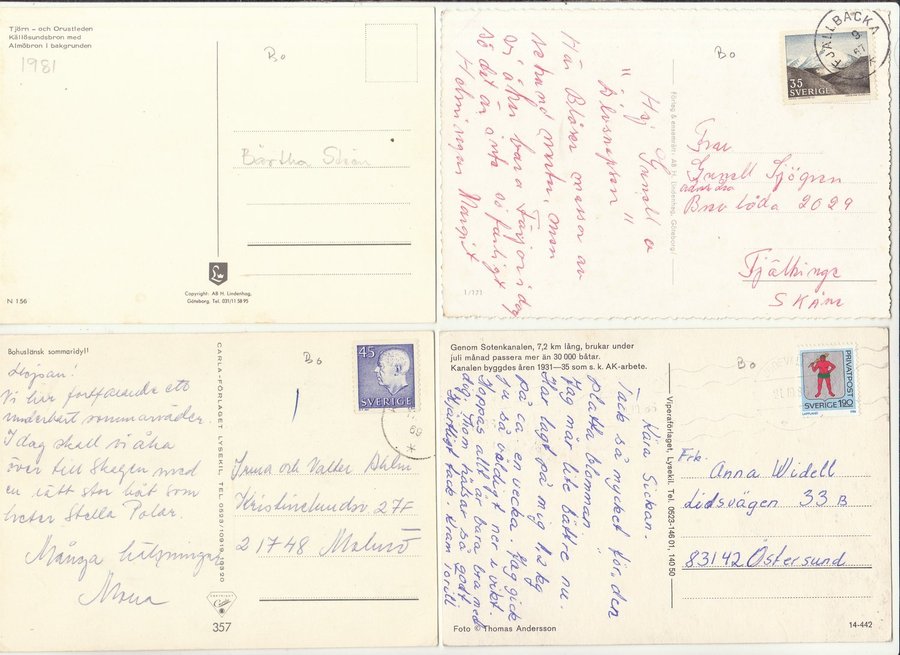 Tjörn - och Orustleden
Källösundsbron med
Almöbron i bakgrunden
1981
Bo
Bärtha
N 156
Copyright: AB H. Lindenhag,
Göteborg. Tel. 031/11 58 95
Hej Gunell o
Här Blåser massor av
men
vi åker bara Färjor i dag
så det är inte så farligt
Holmningar Margit
Förlag & ensamrätt: AB H. Lindenhag, Göteborg
1/171
Bo
FJÄLLBACKA
9
67
35
SVERIGE
Fru
Gunell Sjögren
Brevlåda 2029
Fjälkinge
SKÅNE
Bohuslänsk sommaridyll
Bo
Hojsan!
Vi har fortfarande ett
underbart sommarväder.
I dag skall vi åka
över till Skagen med
en jätt stor båt som
heter Stella Polar.
Många hälsningar
Mona
CARLA-FÖRLAGET LYSEKIL TEL 0523/10919, 19320
357
45
SVERIGE
69
Irma och Valter
27F
21748 Malmö
Genom Sotenkanalen, 7,2 km lång, brukar under
juli månad passera mer än 30 000 båtar.
Kanalen byggdes åren 1931—35 som s. k. AK-arbete.
Kära Sickan.
Tack så mycket för den
platta blomman
Jag mår lite bättre nu.
Har lagt på mig 1,2 kg
på ca en vecka. Jag gick
ju så väldigt ner i vikt.
Hoppas allt är bara bra med
dig. Thom hälsar så gott
Hjärtligt tack. Kram Torill
Foto © Thomas Andersson
Viperaförlaget, Lysekil. Tel. 0523-146 01, 140 50
Bo
PRIVATPOST
SVERIGE 190
Frk.
Anna Widell
Lidsvägen 33 B
83142 Östersund
14-442